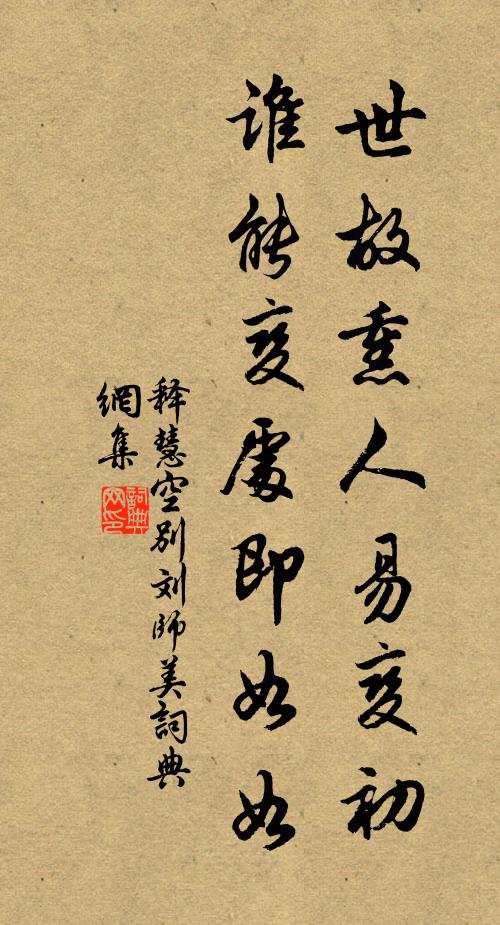 世故熏人易变初
谁能变处即如如
释慧空别刘师美詞典
網集
詞典
网印